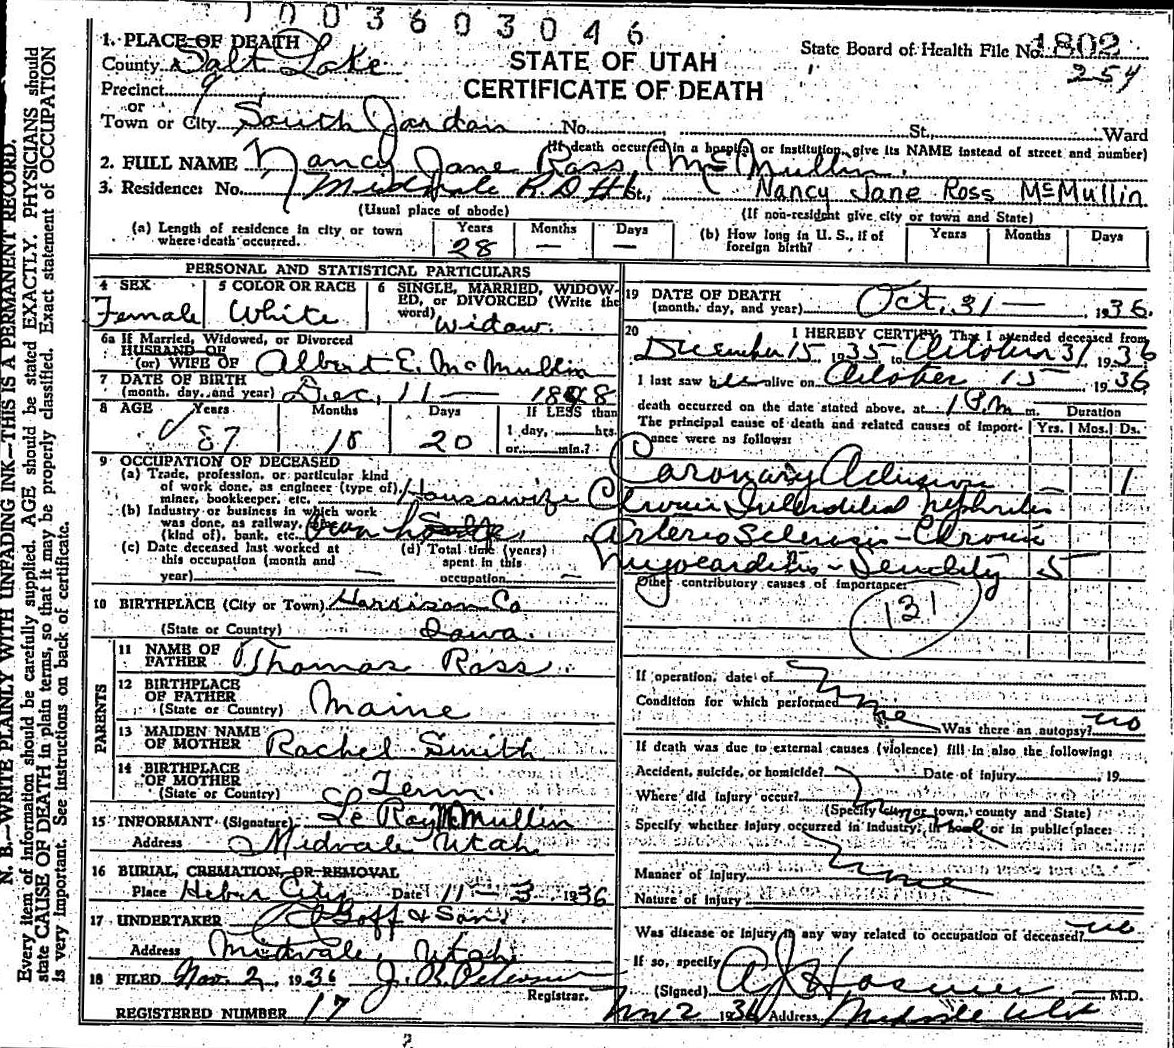 1003603046
1. PLACE OF DEATH
County Salt Lake
Precinct 9
or
Town or City South Jordan No. St., Ward
STATE OF UTAH
CERTIFICATE OF DEATH
State Board of Health File No. 1802
254
(If death occurred in a hospital or institution, give its NAME instead of street and number)
2. FULL NAME Nancy Jane Ross (McMullin.
3. Residence: No. Midvale R.D. St., Nancy Jane Ross McMullin
(Usual place of abode) (If non-resident give city or town and State)
(a) Length of residence in city or town where death occurred. Years 28 Months — Days —
(b) How long in U. S., if of foreign birth? Years Months Days
PERSONAL AND STATISTICAL PARTICULARS
4 SEX Female
5 COLOR OR RACE White
6 SINGLE, MARRIED, WIDOWED, or DIVORCED (Write the word) Widow.
6a If Married, Widowed, or Divorced
HUSBAND OF
(or) WIFE OF Albert E. McMullin
7 DATE OF BIRTH
(month, day, and year) Dec. 11 — 1848
8 AGE Years 87 Months 10 Days 20 If LESS than 1 day, hrs. or min.?
9 OCCUPATION OF DECEASED
(a) Trade, profession, or particular kind
of work done, as engineer (type of)
miner, bookkeeper, etc. Housewife
(b) Industry or business in which work
was done, as railway,
(kind of), bank, etc. Own home
(c) Date deceased last worked at
this occupation (month and
year) —
(d) Total time (years)
spent in this
occupation —
10 BIRTHPLACE (City or Town) Harrison Co
(State or Country) Iowa.
PARENTS
11 NAME OF
FATHER Thomas Ross
12 BIRTHPLACE
OF FATHER
(State or Country) Maine
13 MAIDEN NAME
OF MOTHER Rachel Smith
14 BIRTHPLACE
OF MOTHER
(State or Country) Tenn.
15 INFORMANT (Signature) Le Roy McMullin
Address Midvale Utah
16 BURIAL, CREMATION, OR REMOVAL
Place Heber City Date 11 - 3 1936
17 UNDERTAKER Goff & Sons
Address Midvale, Utah
18 FILED Nov. 2, 1936 J. B. Peterson
Registrar.
REGISTERED NUMBER 17
19 DATE OF DEATH
(month, day, and year) Oct. 31 — , 1936.
20 I HEREBY CERTIFY, That I attended deceased from
December 15, 1935 to October 31 1936
I last saw her alive on October 15 1936
death occurred on the date stated above, at 1 P.m. m. Duration
The principal cause of death and related causes of importance were as follows: Yrs. Mos. Ds.
Coronary Oclusion — 1
Chronic Interstitial Nephritis
Arterio Sclerosis - Chronic
Myocarditis - Senility 5
Other contributory causes of importance:
131
If operation, date of
Condition for which performed none
Was there an autopsy? no
If death was due to external causes (violence) fill in also the following:
Accident, suicide, or homicide? Date of injury 19
Where did injury occur?
(Specify city or town, county and State)
Specify whether injury occurred in industry, in home, or in public place:
none
Manner of Injury
Nature of Injury
Was disease or injury in any way related to occupation of deceased? no
If so, specify
(Signed) A J Hosmer M.D.
Nov 2 1936 Address Midvale Utah
N. B.—WRITE PLAINLY WITH UNFADING INK—THIS IS A PERMANENT RECORD.
Every item of information should be carefully supplied. AGE should be stated EXACTLY. PHYSICIANS should
state CAUSE OF DEATH in plain terms, so that it may be properly classified. Exact statement of OCCUPATION
is very important. See instructions on back of certificate.